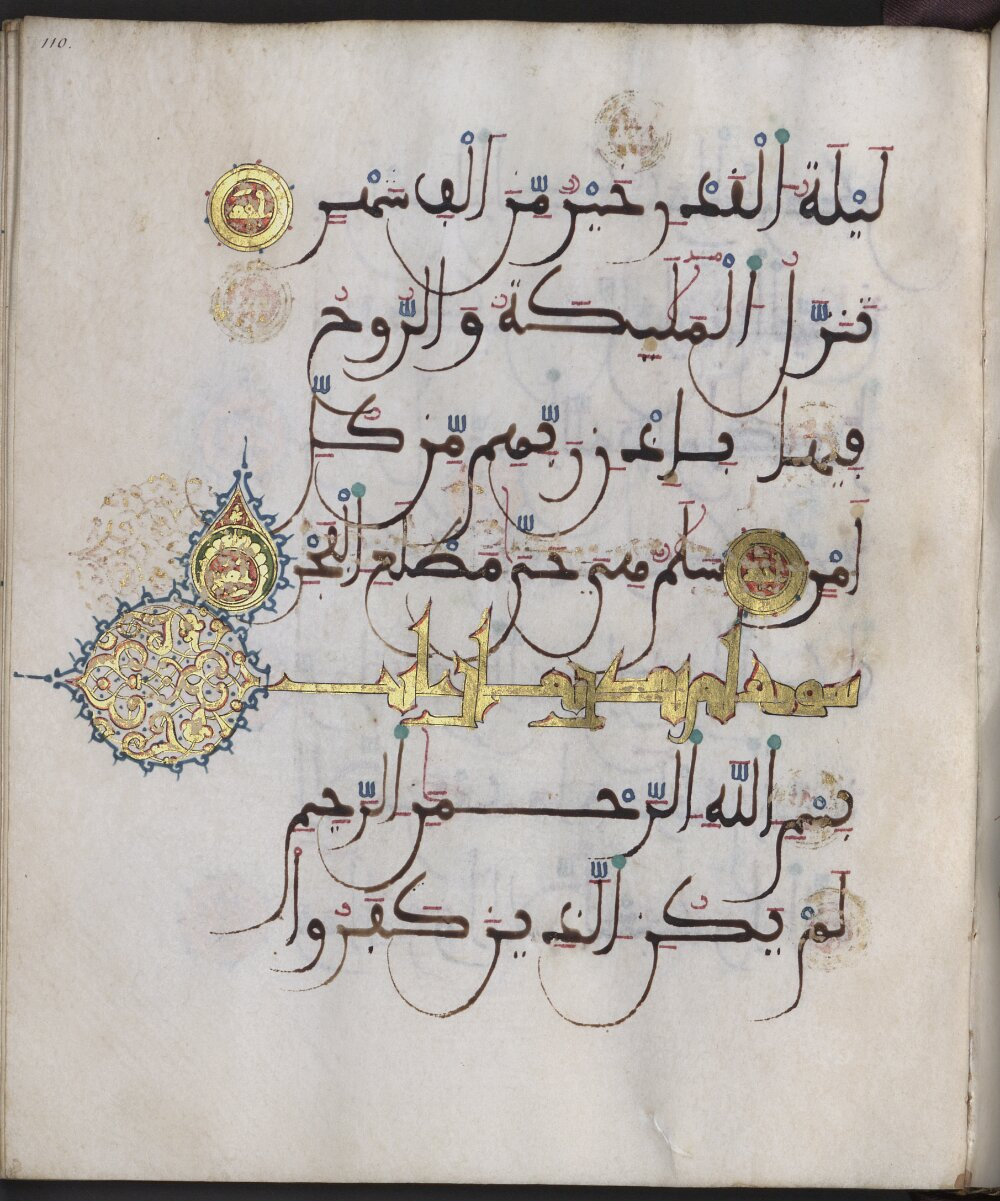 110.
لَيْلَةُ الْقَدْرِ خَيْرٌ مِّنْ أَلْفِ شَهْرٍ
تَنَزَّلُ الْمَلَٰٓئِكَةُ وَالرُّوحُ
فِيهَا بِإِذْنِ رَبِّهِم مِّن كُلِّ
أَمْرٍ سَلَٰمٌ هِيَ حَتَّىٰ مَطْلَعِ الْفَجْرِ
سورة
بِسْمِ اللَّهِ الرَّحْمَٰنِ الرَّحِيمِ
لَمْ يَكُنِ الَّذِينَ كَفَرُوا